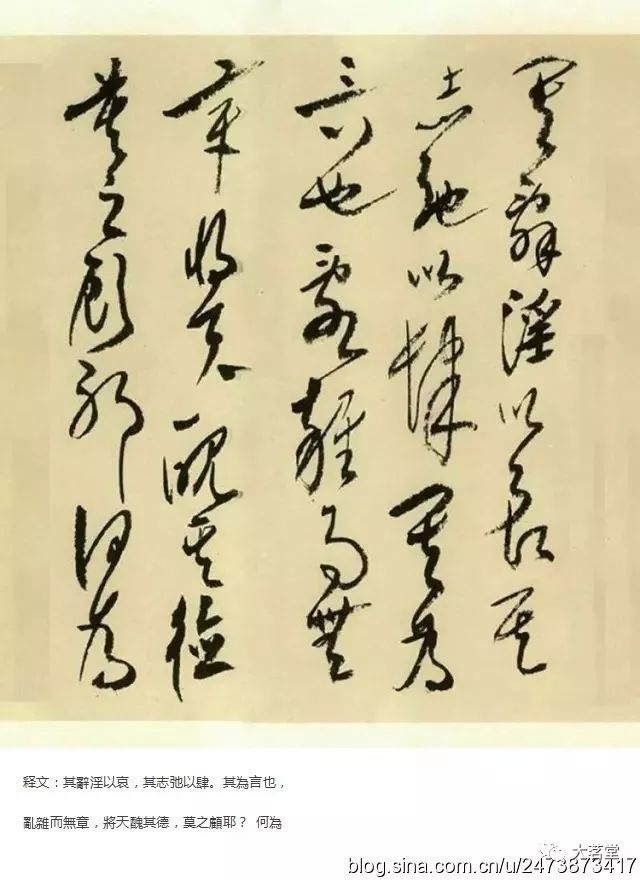 其辭淫以哀其
志弛以肆其為
言也亂雜而無
章將天醜其德
莫之顧耶何為
释文：其辭淫以哀，其志弛以肆。其為言也，
亂雜而無章，將天醜其德，莫之顧耶？ 何為
大茗堂
blog.sina.com.cn/u/2473673417